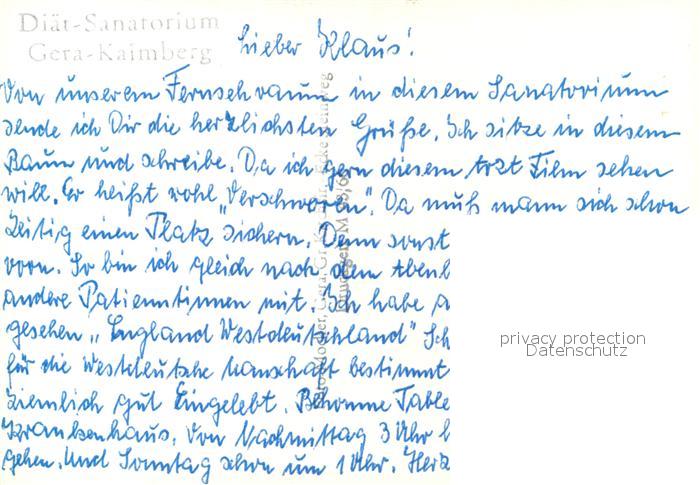 Diät-Sanatorium
Gera-Kaimberg
Lieber Klaus!
Von unserem Fernsehraum in diesem Sanatorium
sende ich Dir die herzlichsten Grüße. Ich sitze in diesem
Raum und schreibe. Da ich gern diesem Film sehen
will. Er heißt wohl „Verschworen". Da muß mann sich schon
Zeitig einen Platz sichern. Denn sonst
vorn. So bin ich gleich nach dem Abenb
andere Patientinnen mit. Ich habe a
gesehen „England Westdeutschland" Ich
für die Westdeutsche Manschaft bestimmt
Ziemlich gut Eingelebt. Bekomme Table
Krankenhaus. Von Nachmittag 3 Uhr b
gehen. Und Sonntag schon um 1 Uhr. Herz
privacy protection
Datenschutz